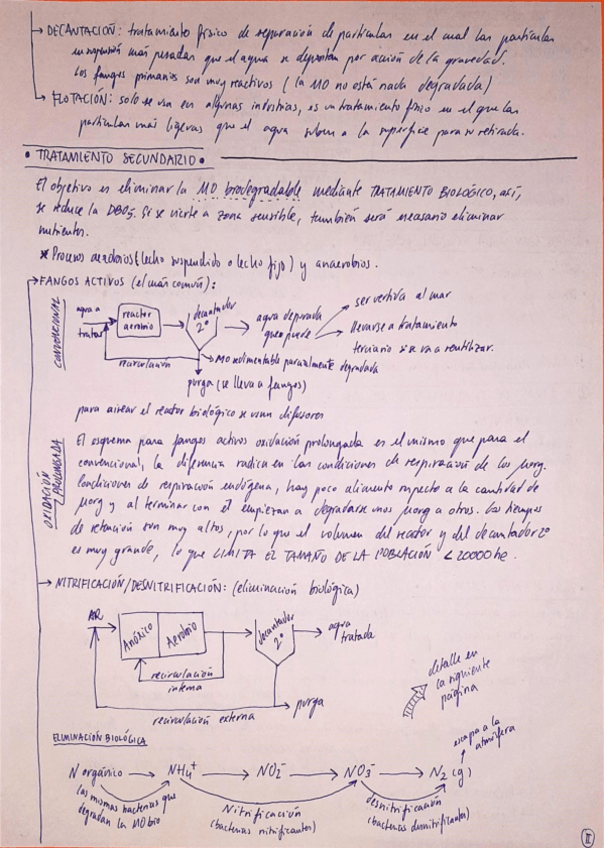 → DECANTACIÓN: tratamiento físico de separación de partículas en el cual las partículas
en suspensión más pesadas que el agua se depositan por acción de la gravedad.
Los fangos primarios son muy reactivos (la MO no está nada degradada)
→ FLOTACIÓN: solo se usa en algunas industrias, es un tratamiento físico en el que las
partículas más ligeras que el agua suben a la superficie para su retirada.
• TRATAMIENTO SECUNDARIO •
El objetivo es eliminar la MO biodegradable mediante TRATAMIENTO BIOLÓGICO, así,
se reduce la DBO5. Si se vierte a zona sensible, también será necesario eliminar
nutrientes.
* Procesos aerobios (lecho suspendido o lecho fijo) y anaerobios.
→ FANGOS ACTIVOS (el más común):
CONVENCIONAL
agua a tratar
reactor aerobio
decantador 2º
agua depurada que puede
ser vertida al mar
llevarse a tratamiento
terciario si se va a reutilizar.
recirculación
MO sedimentable parcialmente degradada
purga (se lleva a fangos)
para airear el reactor biológico se usan difusores
OXIDACIÓN PROLONGADA
El esquema para fangos activos oxidación prolongada es el mismo que para el
convencional, la diferencia radica en las condiciones de respiración de los μorg.
Condiciones de respiración endógena, hay poco alimento respecto a la cantidad de
μorg y al terminar con él empiezan a degradarse unos μorg a otros. Los tiempos
de retención son muy altos, por lo que el volumen del reactor y del decantador 2º
es muy grande, lo que LIMITA EL TAMAÑO DE LA POBLACIÓN < 20000 he.
→ NITRIFICACIÓN/DESNITRIFICACIÓN: (eliminación biológica)
AR
Anóxico
Aerobio
decantador 2º
agua tratada
recirculación interna
purga
recirculación externa
detalle en
la siguiente
página
ELIMINACIÓN BIOLÓGICA
escapa a la
atmósfera
N orgánico → NH4+ → NO2- → NO3- → N2 (g)
las mismas bacterias que
degradan la MO bio
Nitrificación
(bacterias nitrificantes)
desnitrificación
(bacterias desnitrificantes)
II